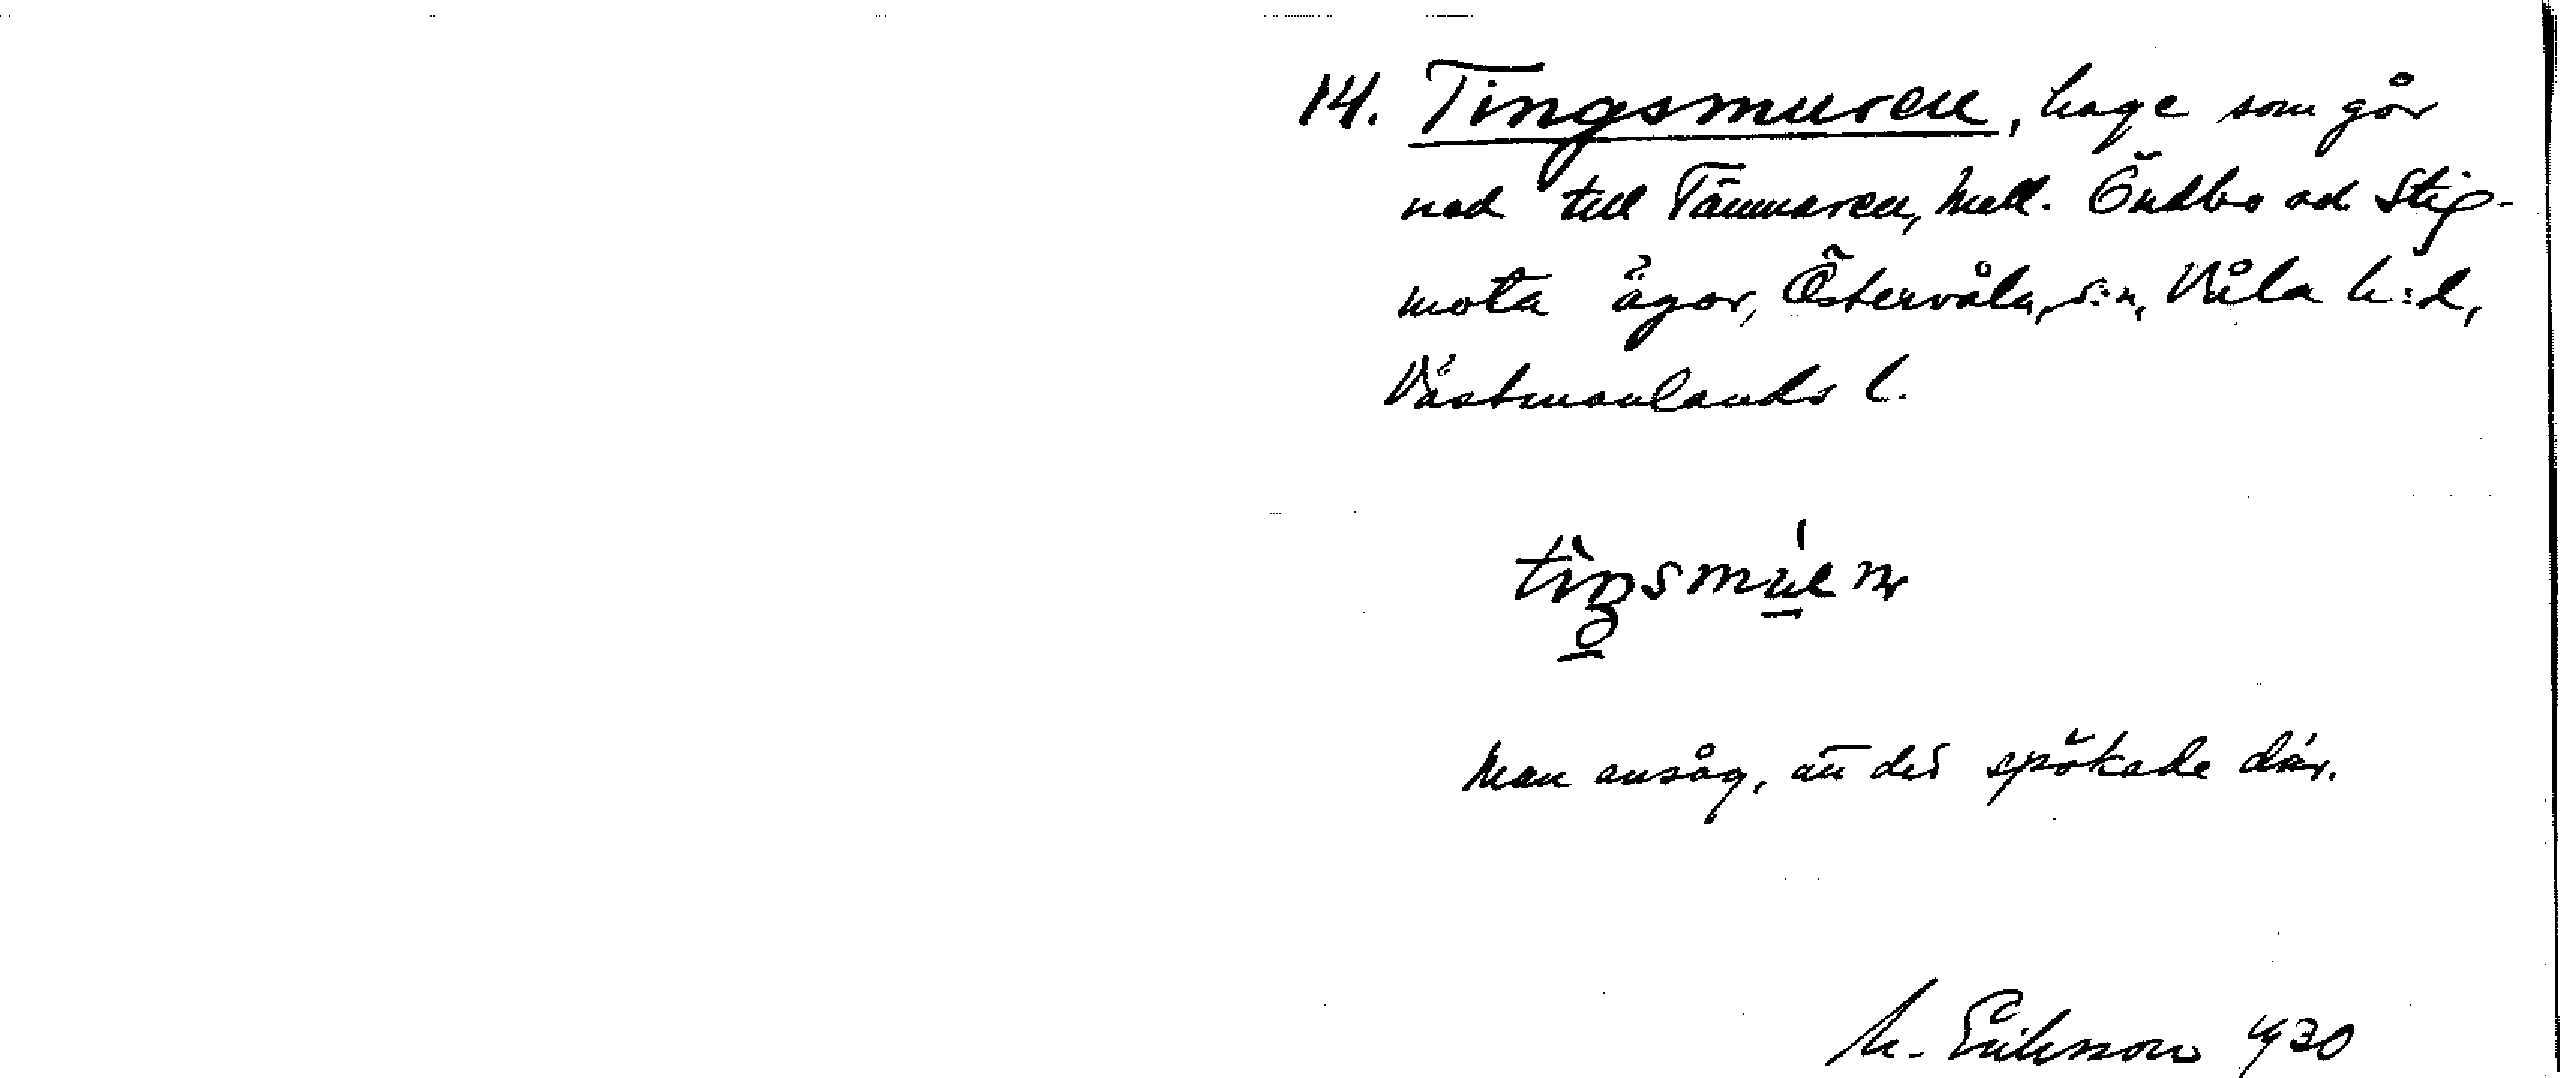 14. Tingsmuren, hage som går
ned till Tämnaren, mell. Öndbo och Stig-
mota ägor, Östervåla, s:n, Våla h:d,
Västmanlands l.
Man ansåg, att det spökade där.
M. Eriksson 1930